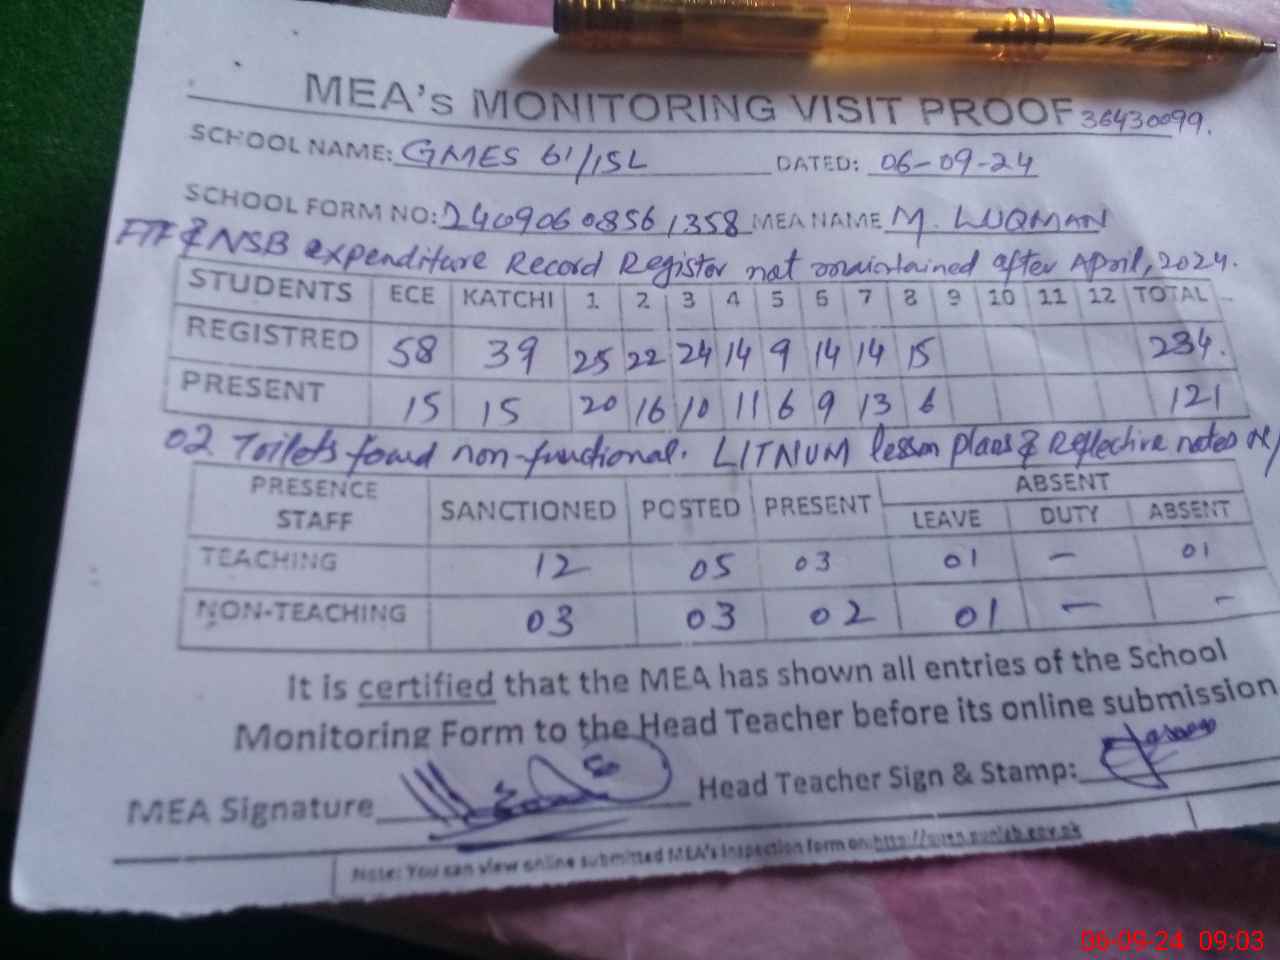 MEA's MONITORING VISIT PROOF 36430099.
SCHOOL NAME: GMES 61/15L DATED: 06-09-24
SCHOOL FORM NO: 24090608561358 MEA NAME M. LUQMAN
FTF & NSB expenditure Record Register not maintained after April, 2024.
STUDENTS ECE KATCHI 1 2 3 4 5 6 7 8 9 10 11 12 TOTAL
REGISTRED 58 39 25 22 24 14 9 14 14 15 234.
PRESENT 15 15 20 16 10 11 6 9 13 6 121
02 Toilets found non-functional. LITNUM lesson plans & Reflective notes
PRESENCE STAFF SANCTIONED POSTED PRESENT ABSENT
LEAVE DUTY ABSENT
TEACHING 12 05 03 01 - 01
NON-TEACHING 03 03 02 01 - -
It is certified that the MEA has shown all entries of the School
Monitoring Form to the Head Teacher before its online submission
MEA Signature Head Teacher Sign & Stamp:
Note: You can view online submitted MEA's inspection form on:
06-09-24 09:03